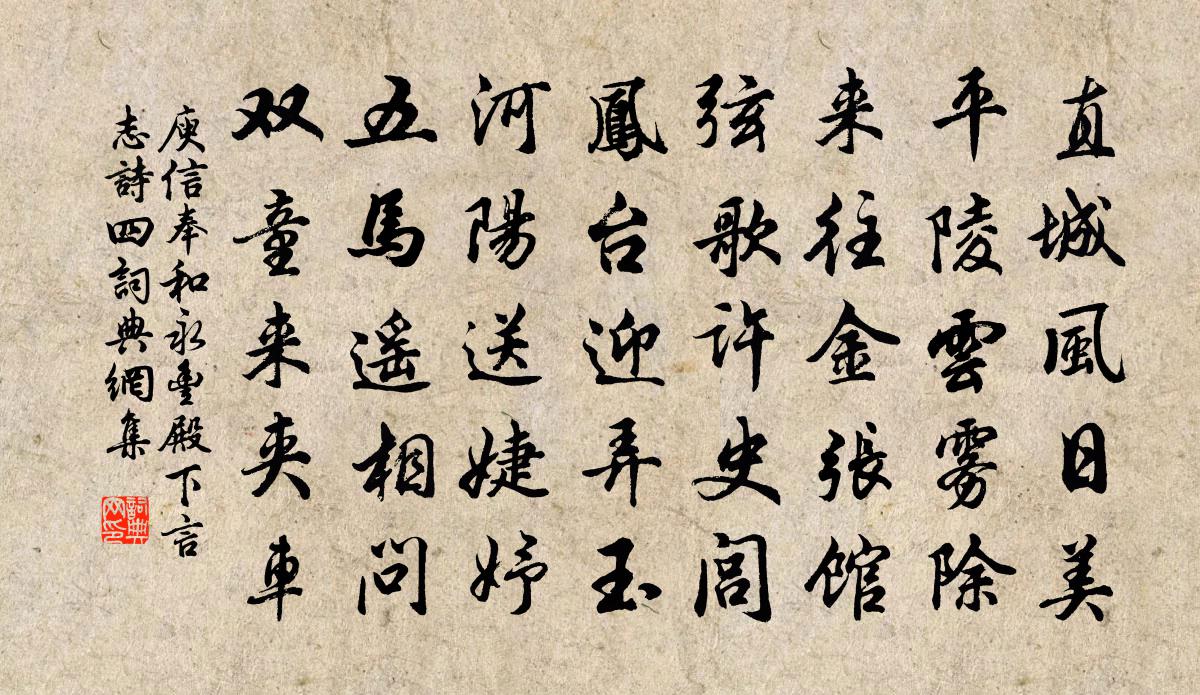 直城風日美
平陵雲雾除
来往金張館
弦歌許史閭
鳳台迎弄玉
河陽送婕妤
五馬遥相問
双童来夹車
庾信奉和永豊殿下言
志詩四詞典網集
詞典
网印